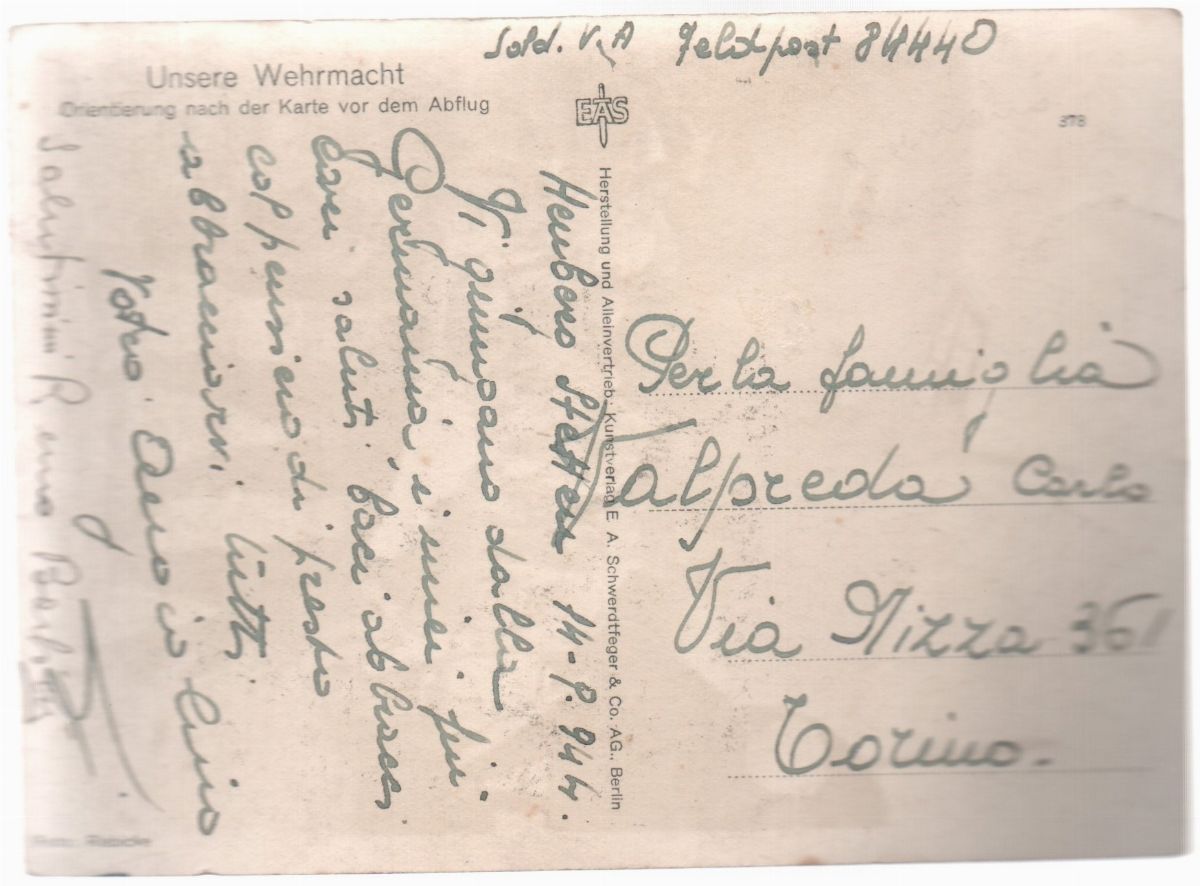 Sold. V. A Feldpost 84440
Unsere Wehrmacht
Orientierung nach der Karte vor dem Abflug
EAS
378
Herstellung und Alleinvertrieb Kunstverlag E. A. Schwerdtfeger & Co. AG., Berlin
Heuberg Stetten 14-8.944.
Vi giungano dalla
Germania, i miei piu
cari saluti baci abbracci
col pensiero di presto
abbracciarvi tutti
Vostro
Lino
Salutissimi Remo
Per la famiglia
Valpreda Carlo
Via Nizza 361
Torino.